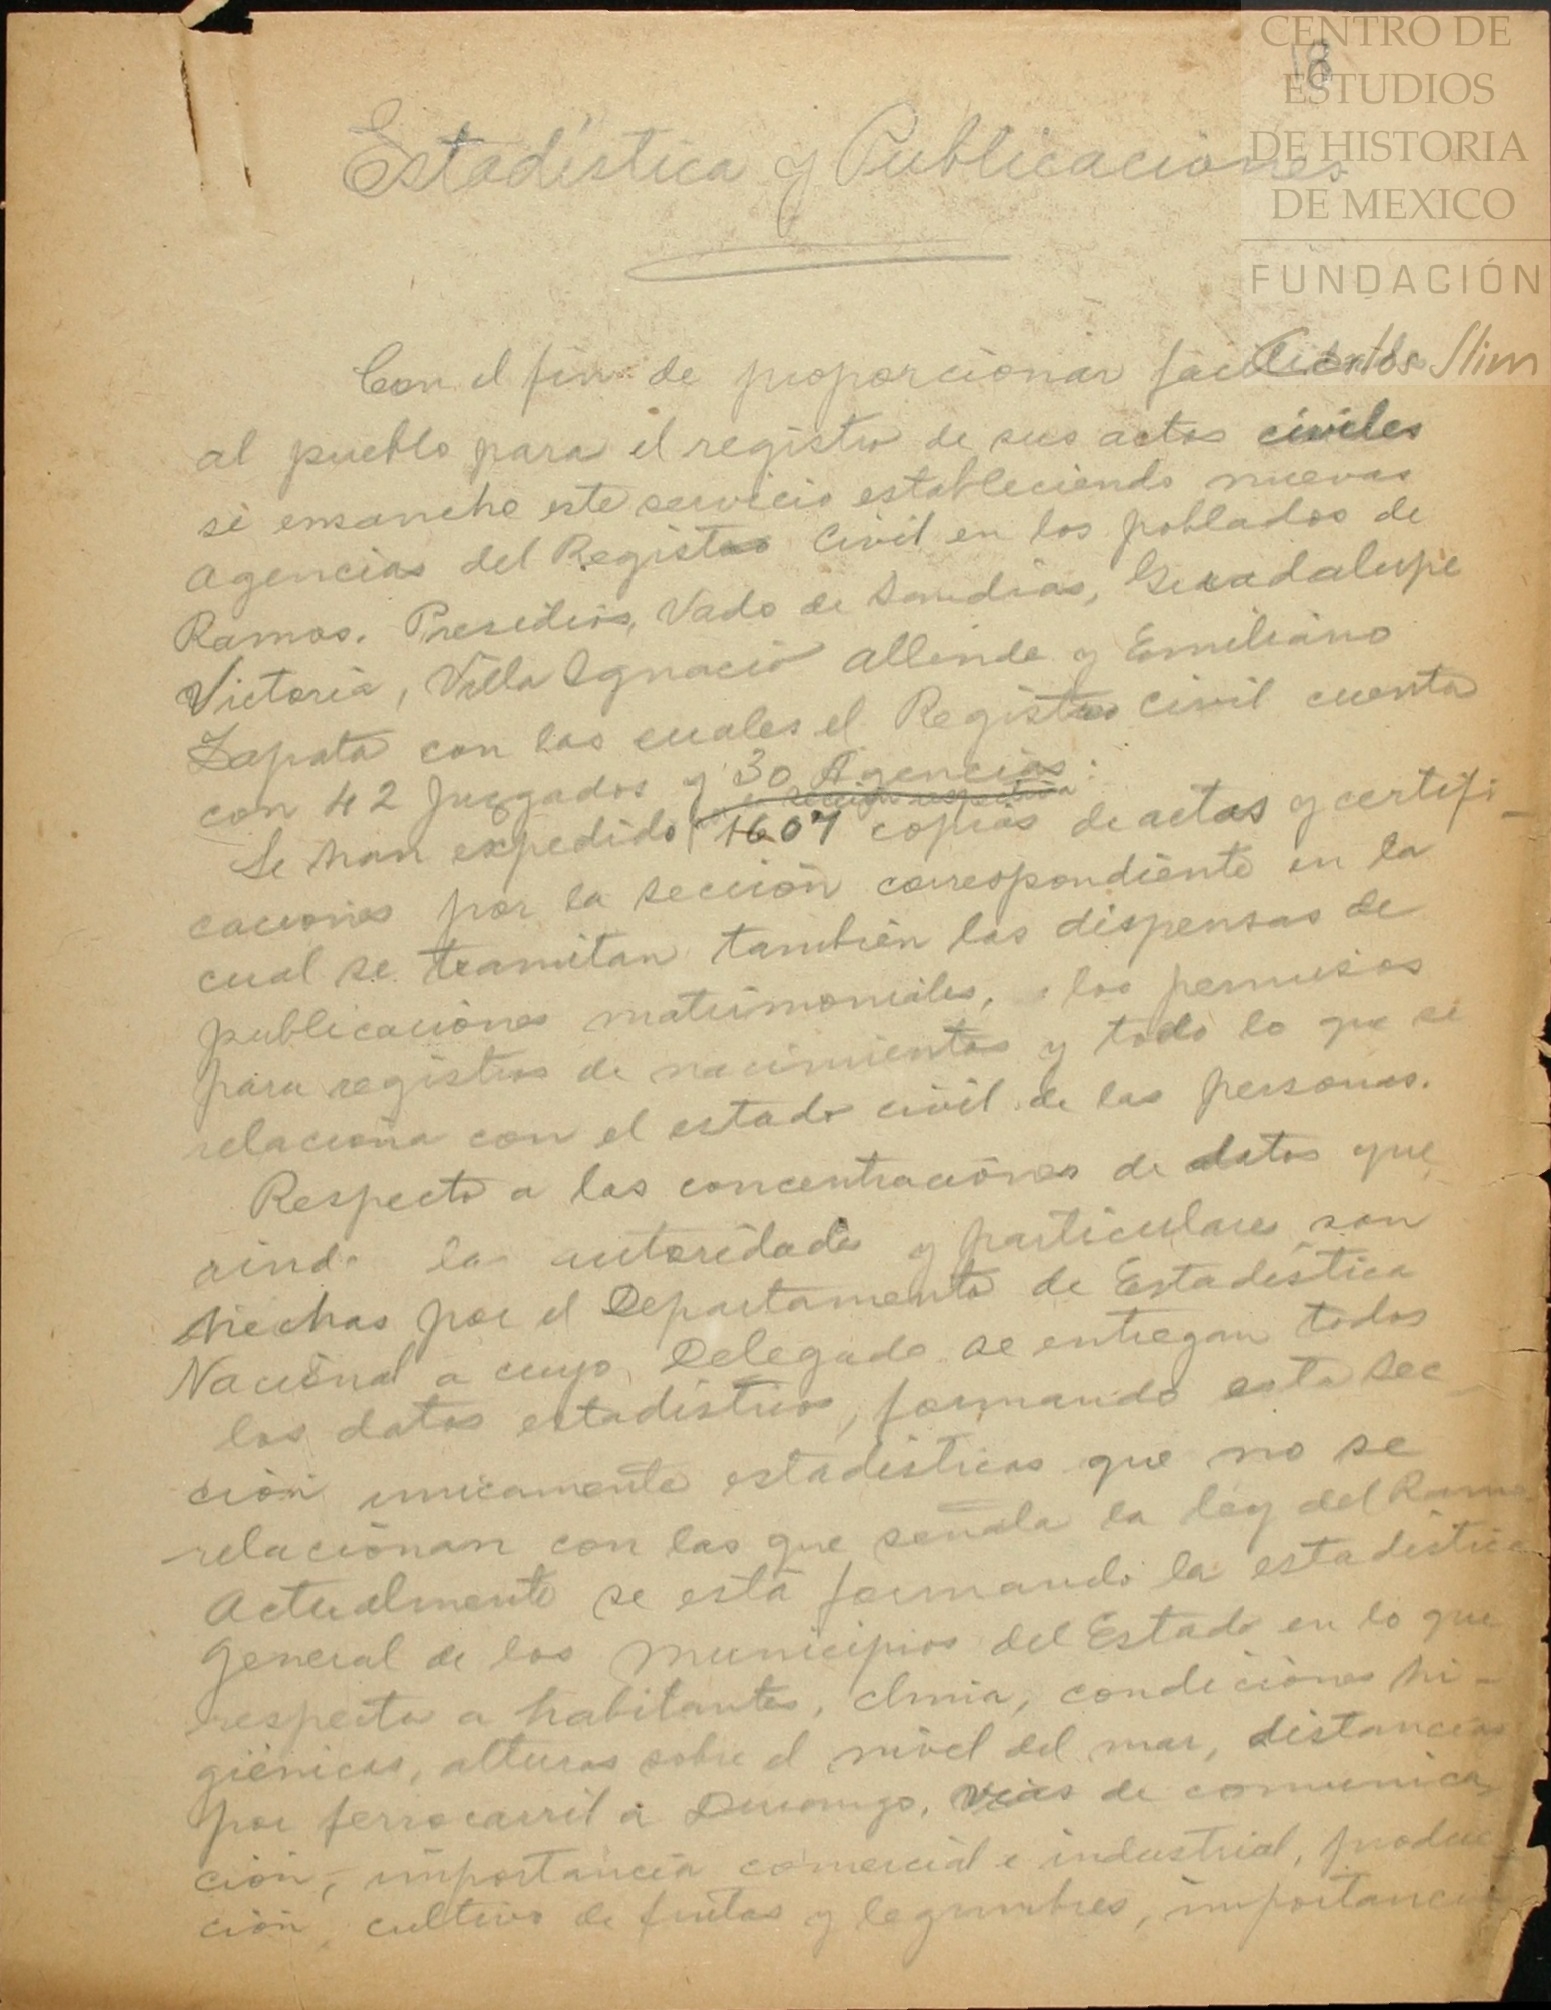 CENTRO DE
ESTUDIOS
DE HISTORIA
DE MEXICO
FUNDACIÓN
Carlos Slim
18
Estadística y Publicaciones
Con el fin de proporcionar facilidades
al pueblo para el registro de sus actos civiles
se ensancho este servicio estableciendo nuevas
Agencias del Registro Civil en los poblados de
Ramos. Presidios, Vado de Sandias, Guadalupe
Victoria, Villa Ignacio Allende y Emiliano
Zapata con las cuales el Registro Civil cuenta
con 42 Juzgados y 30 Agencias:
sección respectiva
Se han expedido 1607 copias de actas y certifi-
caciones por la sección correspondiente en la
cual se tramitan también las dispensas de
publicaciones matrimoniales, los permisos
para registros de nacimientos y todo lo que se
relaciona con el estado civil de las personas.
Respecto a las concentraciones de datos que
rinde las autoridades y particulares son
hechas por el Departamento de Estadística
Nacional a cuyo Delegado se entregan todos
los datos estadísticos, formando esta Sec-
ción unicamente estadísticas que no se
relacionan con las que señala la ley del Ramo.
Actualmente se está formando la estadística
General de los Municipios del Estado en lo que
respecta a habitantes, clima, condiciones hi-
giénicas, alturas sobre el nivel del mar, distancias
por ferrocarril a Durango, vias de comunica-
ción, importancia comercial e industrial, produc-
ción, cultivo de frutas y legumbres, importancia